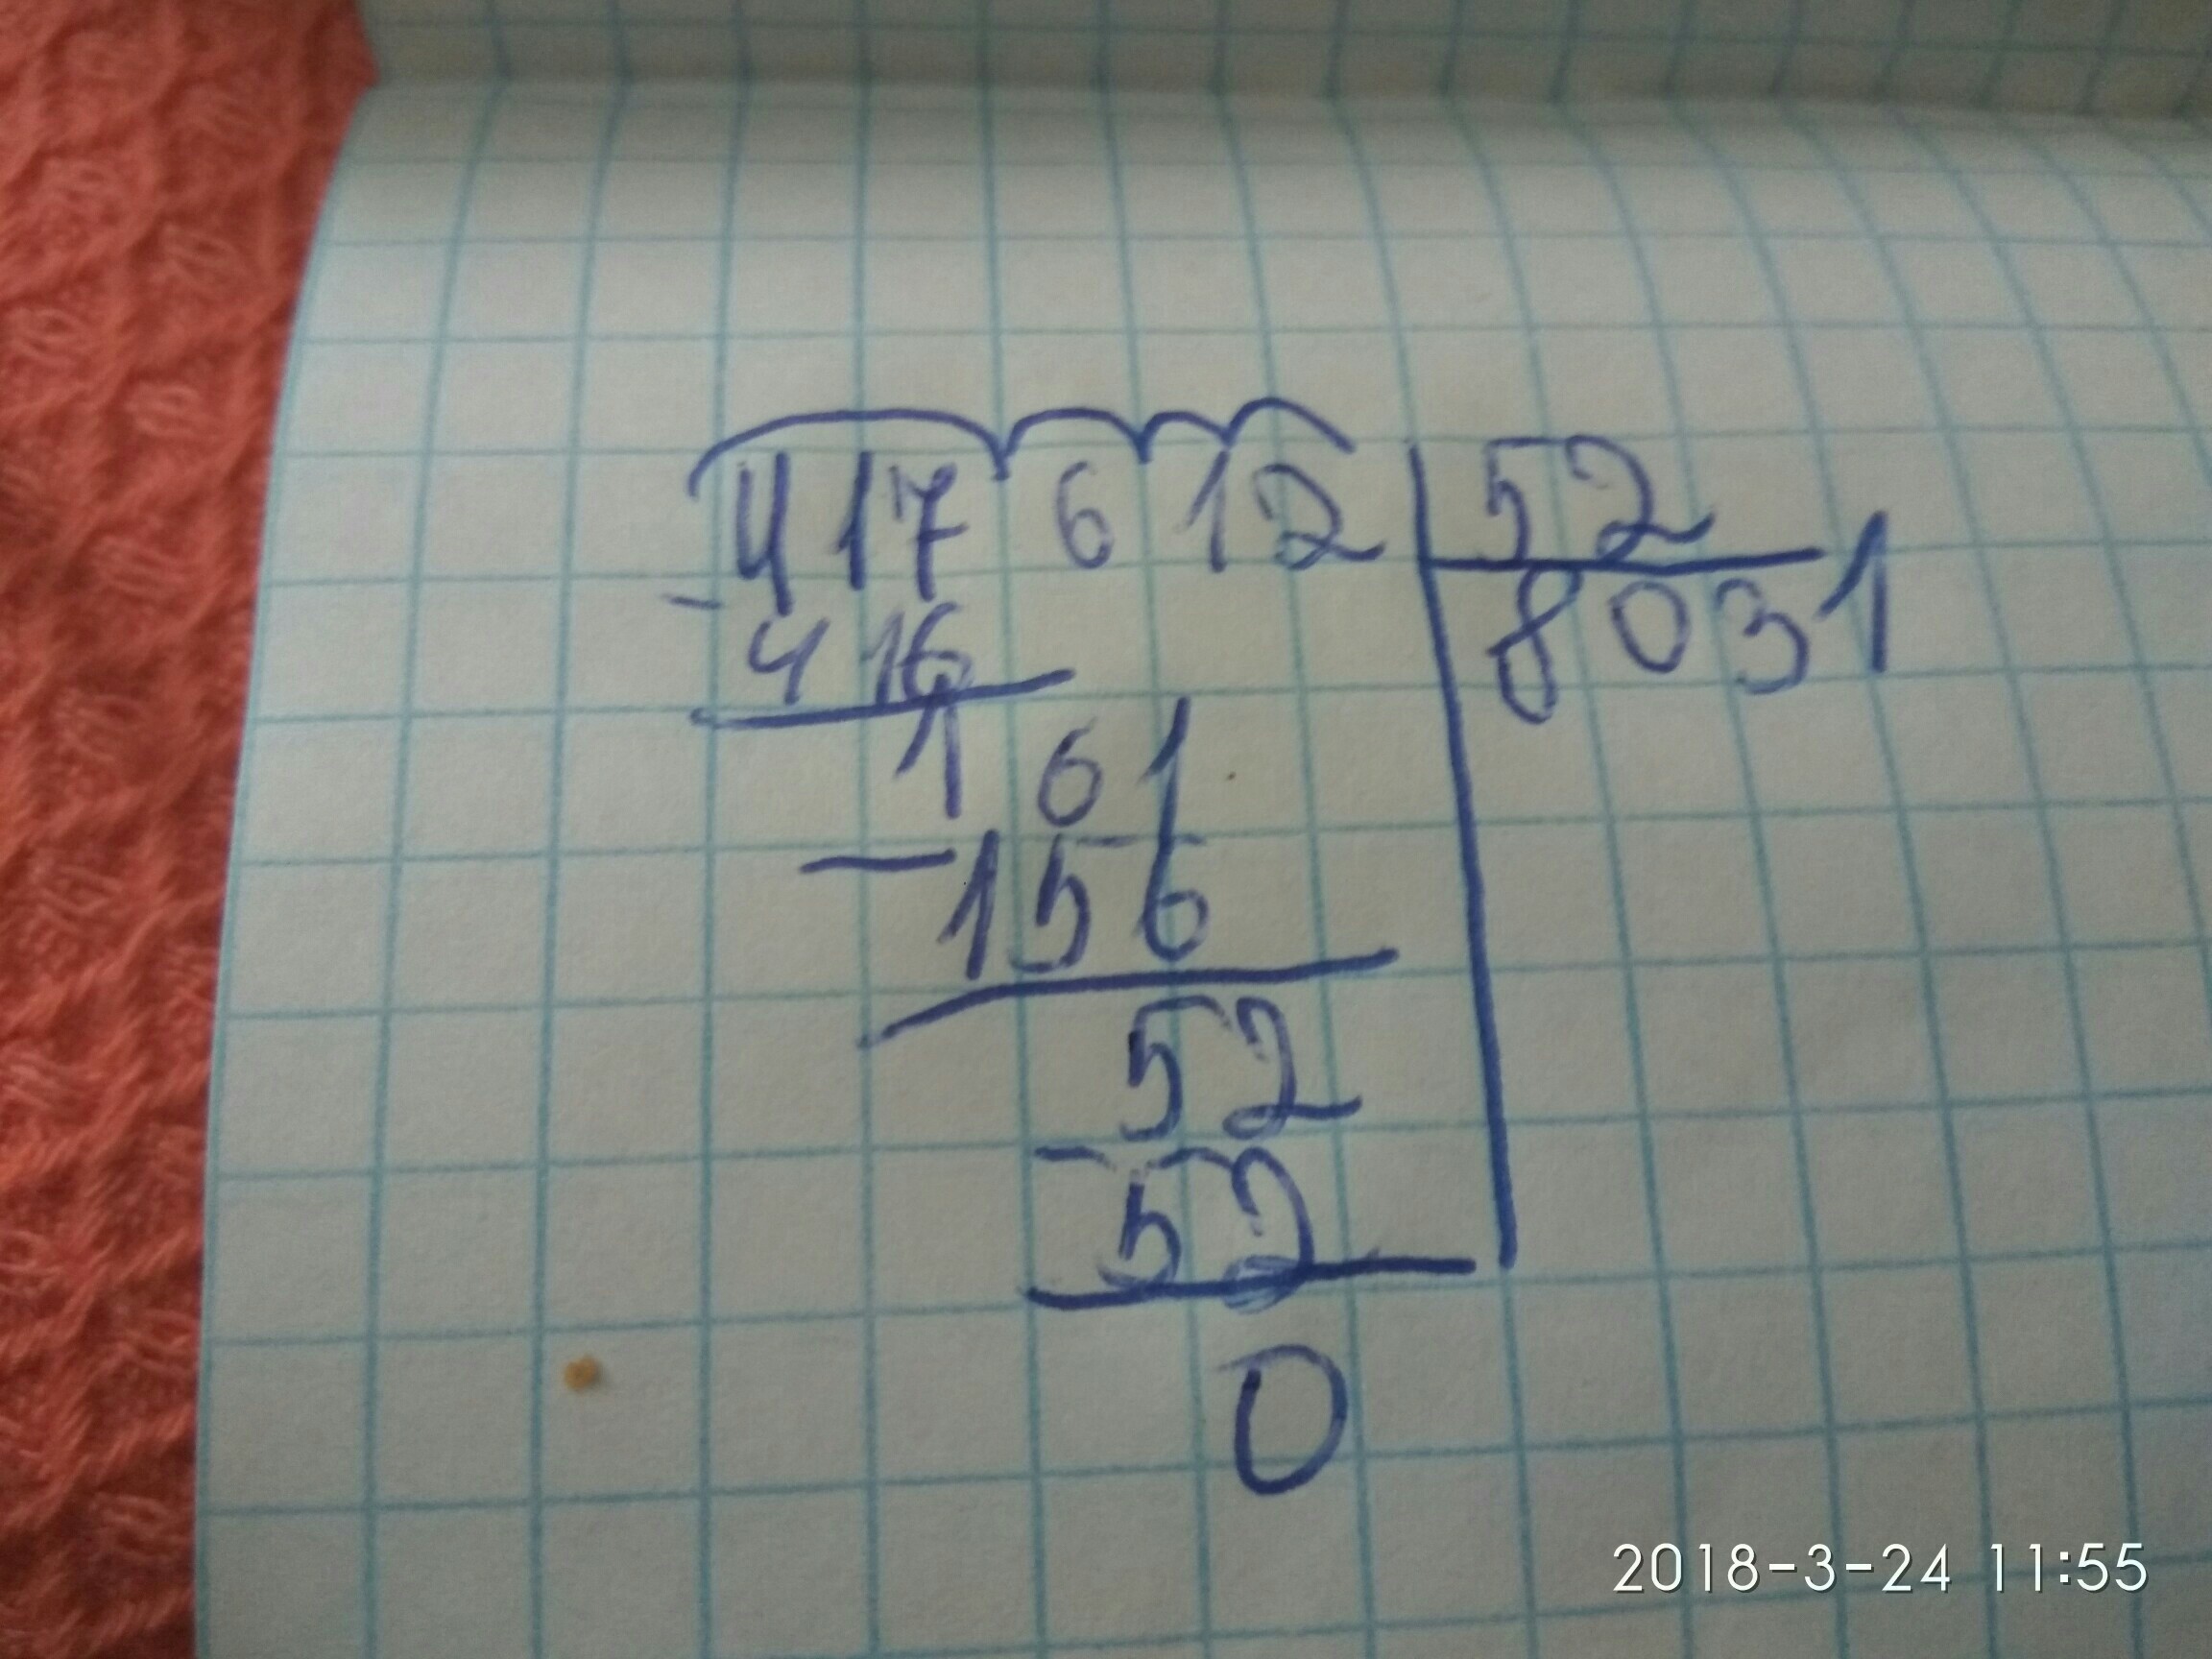 417 612 52
- 416 8031
1 61
- 156
52
- 52
0
2018-3-24 11:55